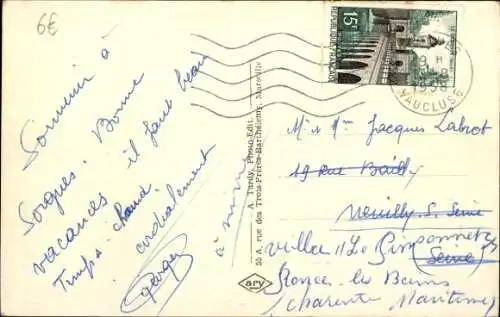 6€
Souvenir à
Sorgues. Bonne
vacances il fait beau
Temps chaud.
cordialement
Georges
A. Tardy, Photo-Édit.
50 A, rue des Trois-Frères-Barthélemy, Marseille
ary
15F
REPUBLIQUE FRANÇAISE
H
1958
VAUCLUSE
M. et Mme Jacques Labrot
19 Rue
Neuilly S. Seine
Villa "Le
(Seine)
Ronce les Bains
Charente Maritime